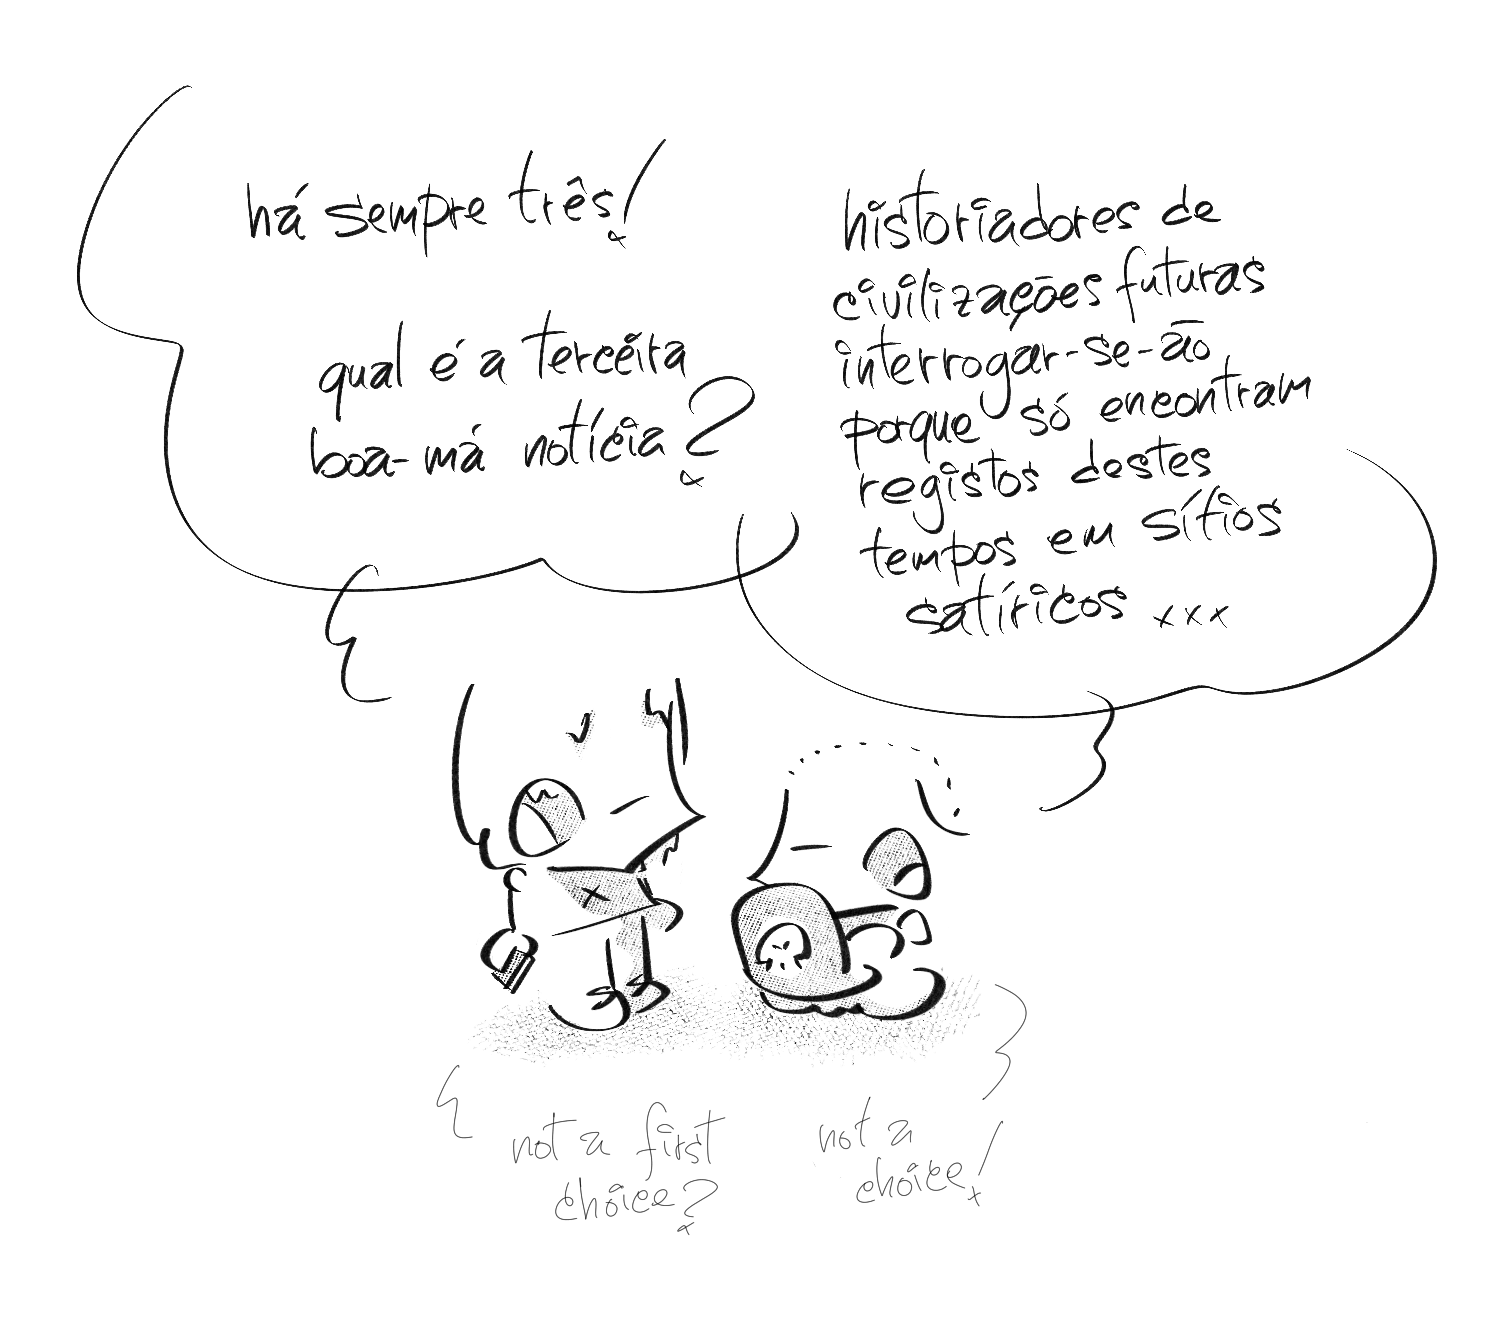 há sempre três!
qual é a terceira
boa-má notícia?
historiadores de
civilizações futuras
interrogar-se-ão
porque só encontram
registos destes
tempos em sítios
satíricos xxx
not a first
choice?
not a
choice!